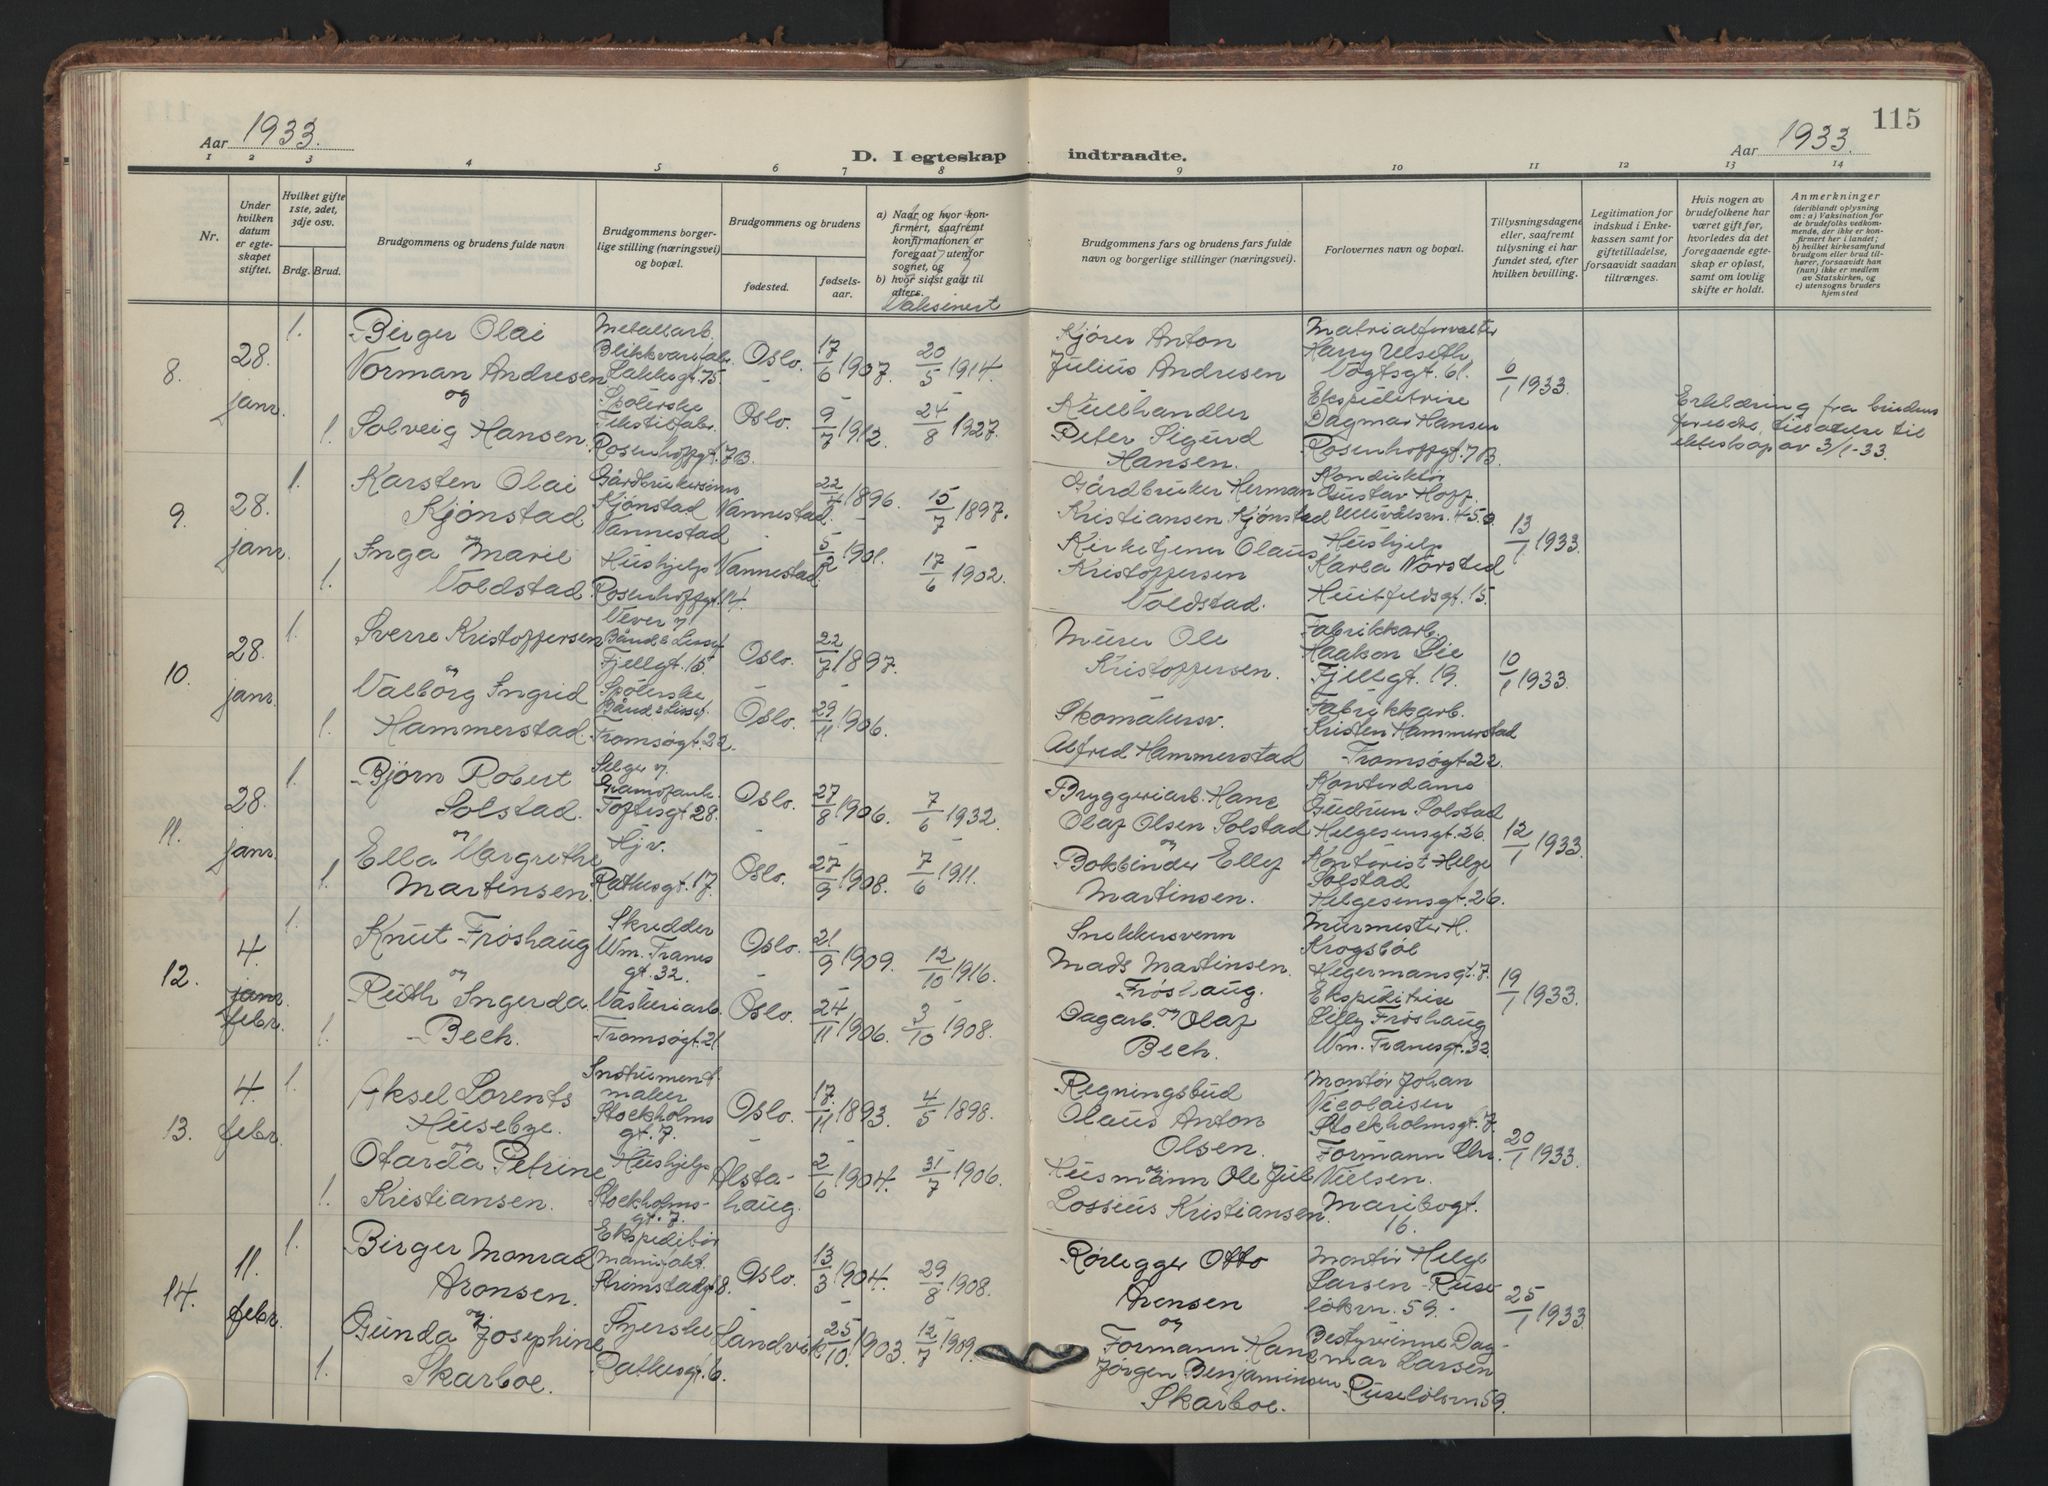 115
Aar 1933.
D. I egteskap indtraadte.
Aar 1933.
1 2 3 4 5 6 7 8 9 10 11 12 13 14
Nr.
Under hvilken datum er egteskapet stiftet.
Hvilket gifte 1ste, 2det, 3dje osv.
Brdg. Brud.
Brudgommens og brudens fulde navn
Brudgommens borgerlige stilling (næringsvei) og bopæl.
Brudgommens og brudens
fødested.
fødselsaar.
a) Naar og hvor konfirmert, saafremt konfirmationen er foregaat utenfor sognet, og
b) hvor sidst gaat til alters.
Vaksinert
Brudgommens fars og brudens fars fulde navn og borgerlige stillinger (næringsvei).
Forlovernes navn og bopæl.
Tillysningsdagene eller, saafremt tillysning ei har fundet sted, efter hvilken bevilling.
Legitimation for indskud i Enkekassen samt for giftetilladelse, forsaavidt saadan tiltrænges.
Hvis nogen av brudefolkene har været gift før, hvorledes da det foregaaende egteskap er opløst, samt om lovlig skifte er holdt.
Anmerkninger
(deriblandt oplysning om: a) Vaksination for de brudefolks vedkommende, der ikke er konfirmert her i landet; b) hvilket kirkesamfund brudgom eller brud tilhører, forsaavidt han (hun) ikke er medlem av Statskirken, og c) utensogns bruders hjemsted
8. 28. janr. 1. Birger Olai Norman Andresen
Metallarb. Blikkvarefabr. Lakkegt. 75
Oslo. 17/6 1907. 20/5 1914.
Kjører Anton Julius Andresen
Matrialforvalter Harry Ulseth, Vogtsgt. 61.
6/1 1933.
og
1. Solveig Hansen.
Spolerske Tekstilfabr. Rosenhoffgt. 7B.
Oslo. 9/7 1912. 24/8 1927.
Kullhandler Peter Sigurd Hansen.
Ekspeditrise Dagmar Hansen Rosenhoffgt. 7B.
Erklæring fra brudens foreldre, tillatelse til ekteskap av 3/1-33.
9. 28. janr. 1. Karsten Olai Kjønstad
Gårdbrukersønn Kjønstad Nannestad
Nannestad. 22/4 1896. 15/7 1897.
Gårdbruker Herman Kristiansen Kjønstad
Konduktør Gustav Hoff. Ullevålsvn. 45.
13/1 1933.
1. Inga Marie Voldstad
Hushjelp Rosenhoffgt. 14.
Nannestad 5/2 1901. 17/6 1902.
Kirketjener Olaus Kristoffersen Voldstad.
Hushjelp Karla Norsted Huitfeldsgt. 15.
10. 28. janr. 1. Sverre Kristoffersen
Vever v/ Bånd & Lissef. Fjellgt. 15
Oslo. 22/7 1897.
Murer Ole Kristoffersen.
Fabrikkarb. Haakon Lie Fjellgt. 19.
10/1 1933.
og
1. Valborg Ingrid Hammerstad.
Spolerske Bånd & Lissef. Tromsøgt. 22.
Oslo. 29/11 1906.
Skomakersv. Alfred Hammerstad
Fabrikkarb. Kristen Hammerstad Tromsøgt 22.
11. 28. janr. 1. Bjørn Robert Solstad.
Selger v. Toftesgt 28.
Oslo. 27/8 1906. 7/6 1932.
Bryggeriarb. Hans Olaf Olsen Solstad
Kontordame Gudrun Solstad Helgesensgt. 26.
12/1 1933.
og
1. Ella Margrethe Martinsen.
Hjv. Rathkesgt. 17.
Oslo. 27/9 1908. 7/6 1911.
og
Bokbinder Ellef Martinsen.
Kontorist Helge Solstad Helgesensgt. 26.
12. 4. janr. febr. 1. Knut Frøshaug
Skredder Wm. Tranes gt. 32.
Oslo. 21/9 1909. 12/10 1916.
Snekkersvenn Mads Martinsen Frøshaug.
Murmester H. Krogsbøl Hegermansgt. 7.
19/1 1933.
og
1. Ruth Ingerda Bech.
Vaskeriarb. Tromsøgt. 21
Oslo. 24/11 1906. 3/10 1908.
og
Dagarb. Olaf Bech.
Ekspeditrise Lilly Frøshaug Wm. Tranesgt. 32.
13. 4. febr. 1. Aksel Lorents Husebye.
Instrumentmaker Stockholmsgt. 7.
Oslo. 17/11 1893. 4/5 1898.
Regningsbud Olaus Anton Olsen.
Montør Johan Nicolaisen Stockholmsgt. 7.
20/1 1933.
og
1. Otarda Petrine Kristiansen.
Hushjelp Stockholmsgt. 7.
Alstahaug. 2/6 1904. 31/7 1906.
og
Husmann Ole Jul Lossius Kristiansen.
Formann Chr. Nielsen. Maribogt. 16.
14. 11. febr. 1. Birger Monrad Aronsen.
Ekspeditør manufakt. Strømstadgt 8.
Oslo. 13/3 1904. 29/8 1908.
Rørlegger Otto Aronsen
Montør Helge Larsen Ruseløkvn. 59.
25/1 1933.
og
1. Gunda Josephine Skarboe.
Syerske Rathkesgt. 6.
Sandvik 25/10. 1903. 12/7 1909.
og
Formann Hans Jørgen Benjaminsen Skarboe.
Bestyrerinne Dagmar Larsen Ruseløkvn 59.